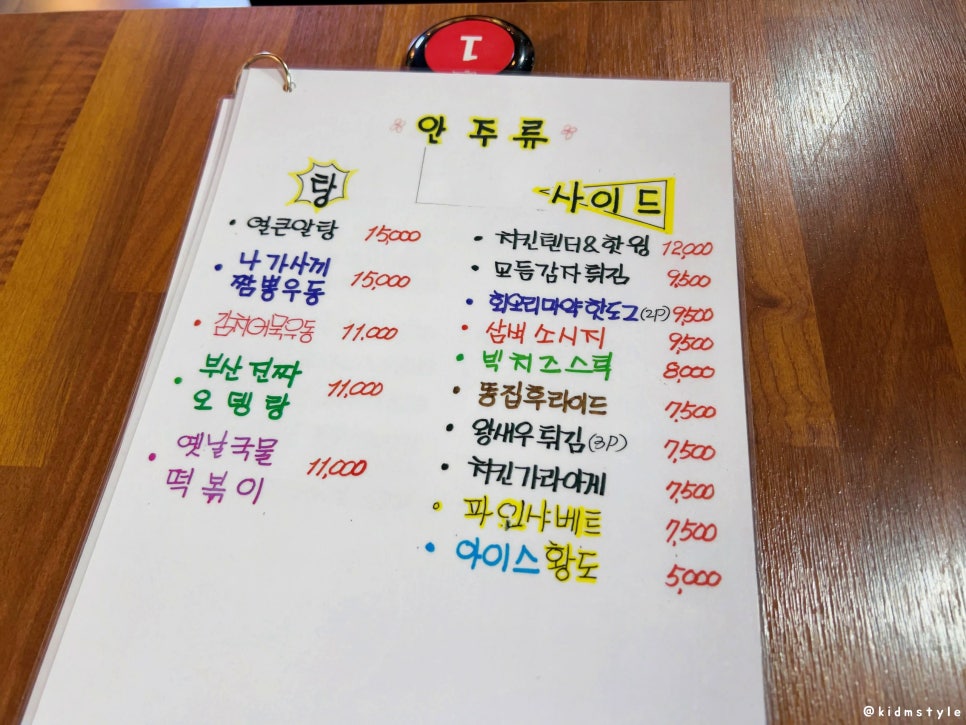 1
안주류
탕
• 얼큰알탕 15,000
• 나가사끼
짬뽕우동 15,000
• 김치어묵우동 11,000
• 부산진짜
오뎅탕 11,000
• 옛날국물
떡볶이 11,000
사이드
• 치킨텐더&핫윙 12,000
• 모듬감자튀김 9,500
• 회오리마약핫도그(2P) 9,500
• 삼벽소시지 9,500
• 빅치즈스틱 8,000
• 똥집후라이드 7,500
• 왕새우튀김(3P) 7,500
• 치킨가라아게 7,500
• 파인샤베트 7,500
• 아이스황도 5,000
@kidmstyle